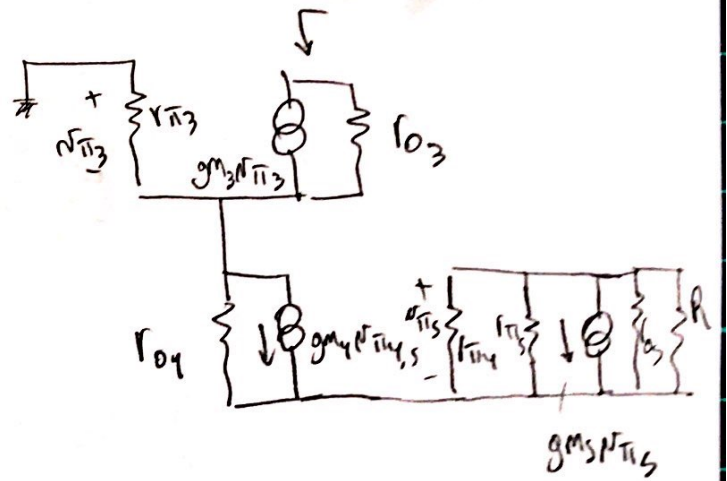 +
rπ3
vπ3
-
gm3vπ3
ro3
ro4
gm4vπ4,5
+
vπ5
-
rπ4
rπ5
ro5
R
gm5vπ5